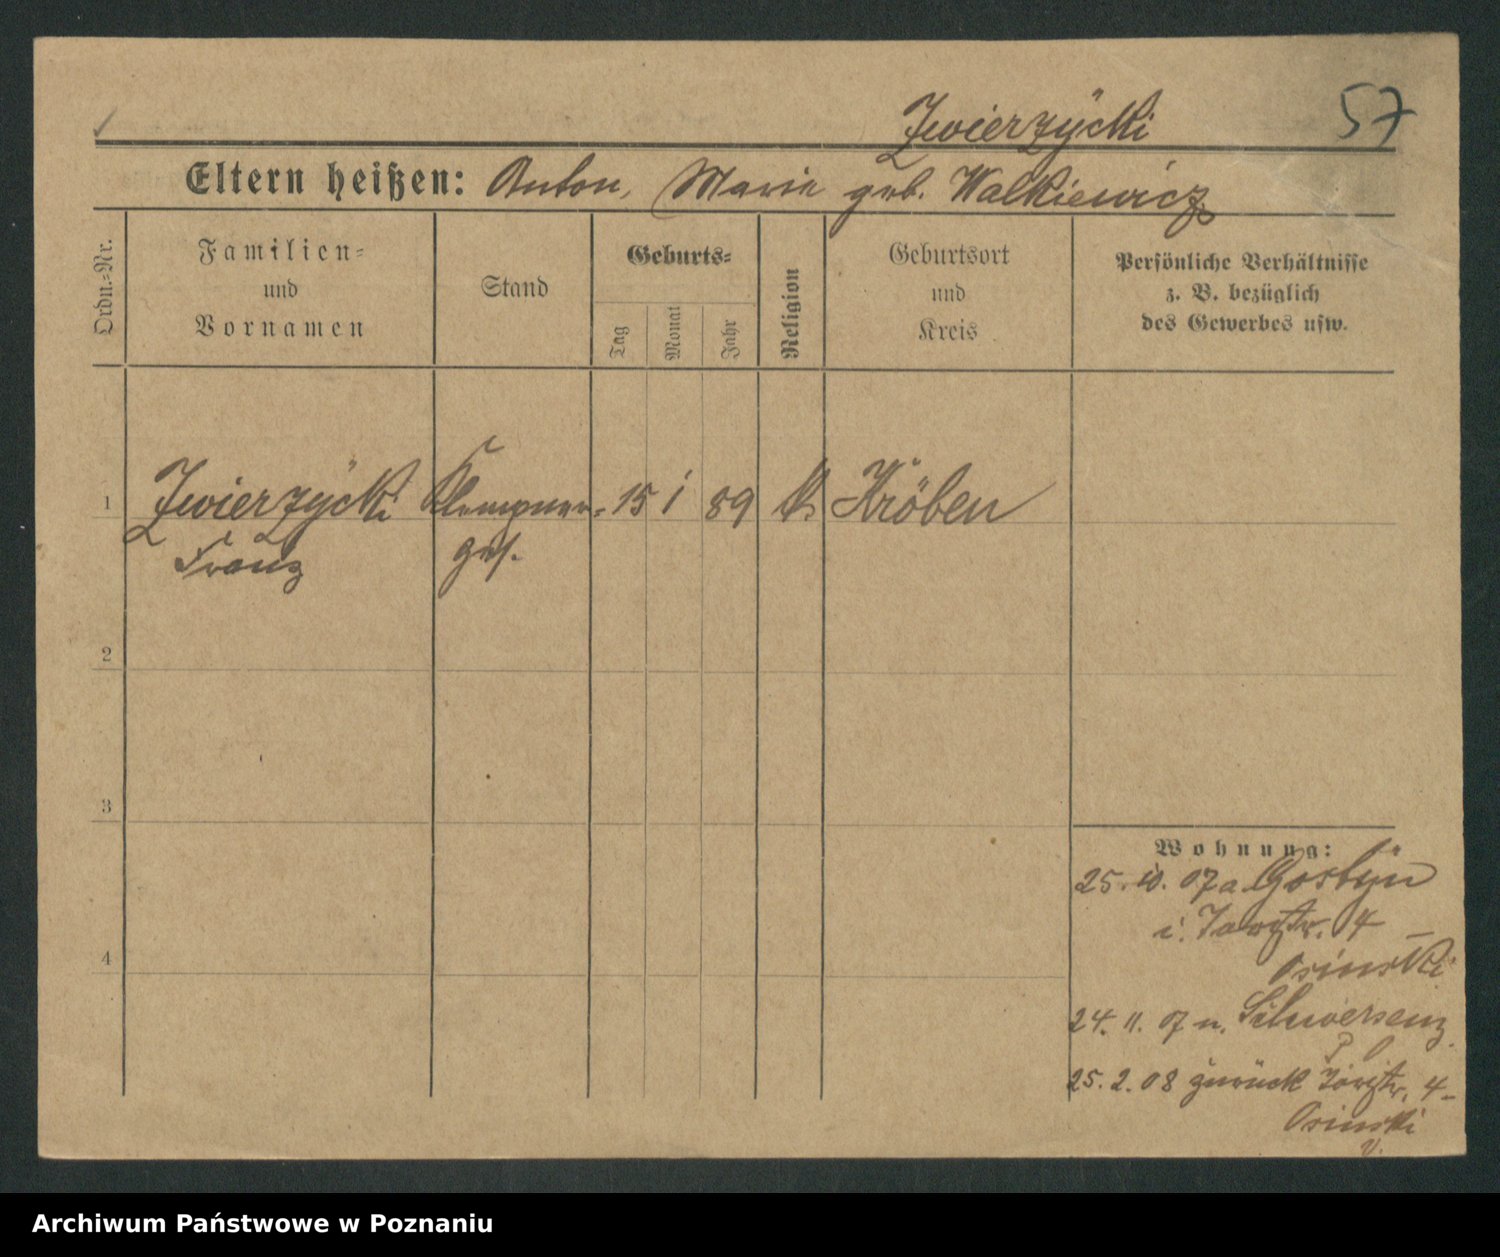 57
Zwierzÿcki
Eltern heißen: Anton, Marie geb. Walkiewicz
Ordn.-Nr.
Familien-
und
Vornamen
Stand
Geburts-
Tag
Monat
Jahr
Religion
Geburtsort
und
Kreis
Persönliche Verhältnisse
z. B. bezüglich
des Gewerbes usw.
1 Zwierzÿcki Klempner- 15 1 89 k. Kröben
Franz ges.
2
3
4
Wohnung:
25. 10. 07 a. Gostÿn
4
Osinski
24. 11. 07 n. Schwersenz
25. 2. 08 zurück 4
Osinski
v.
Archiwum Państwowe w Poznaniu